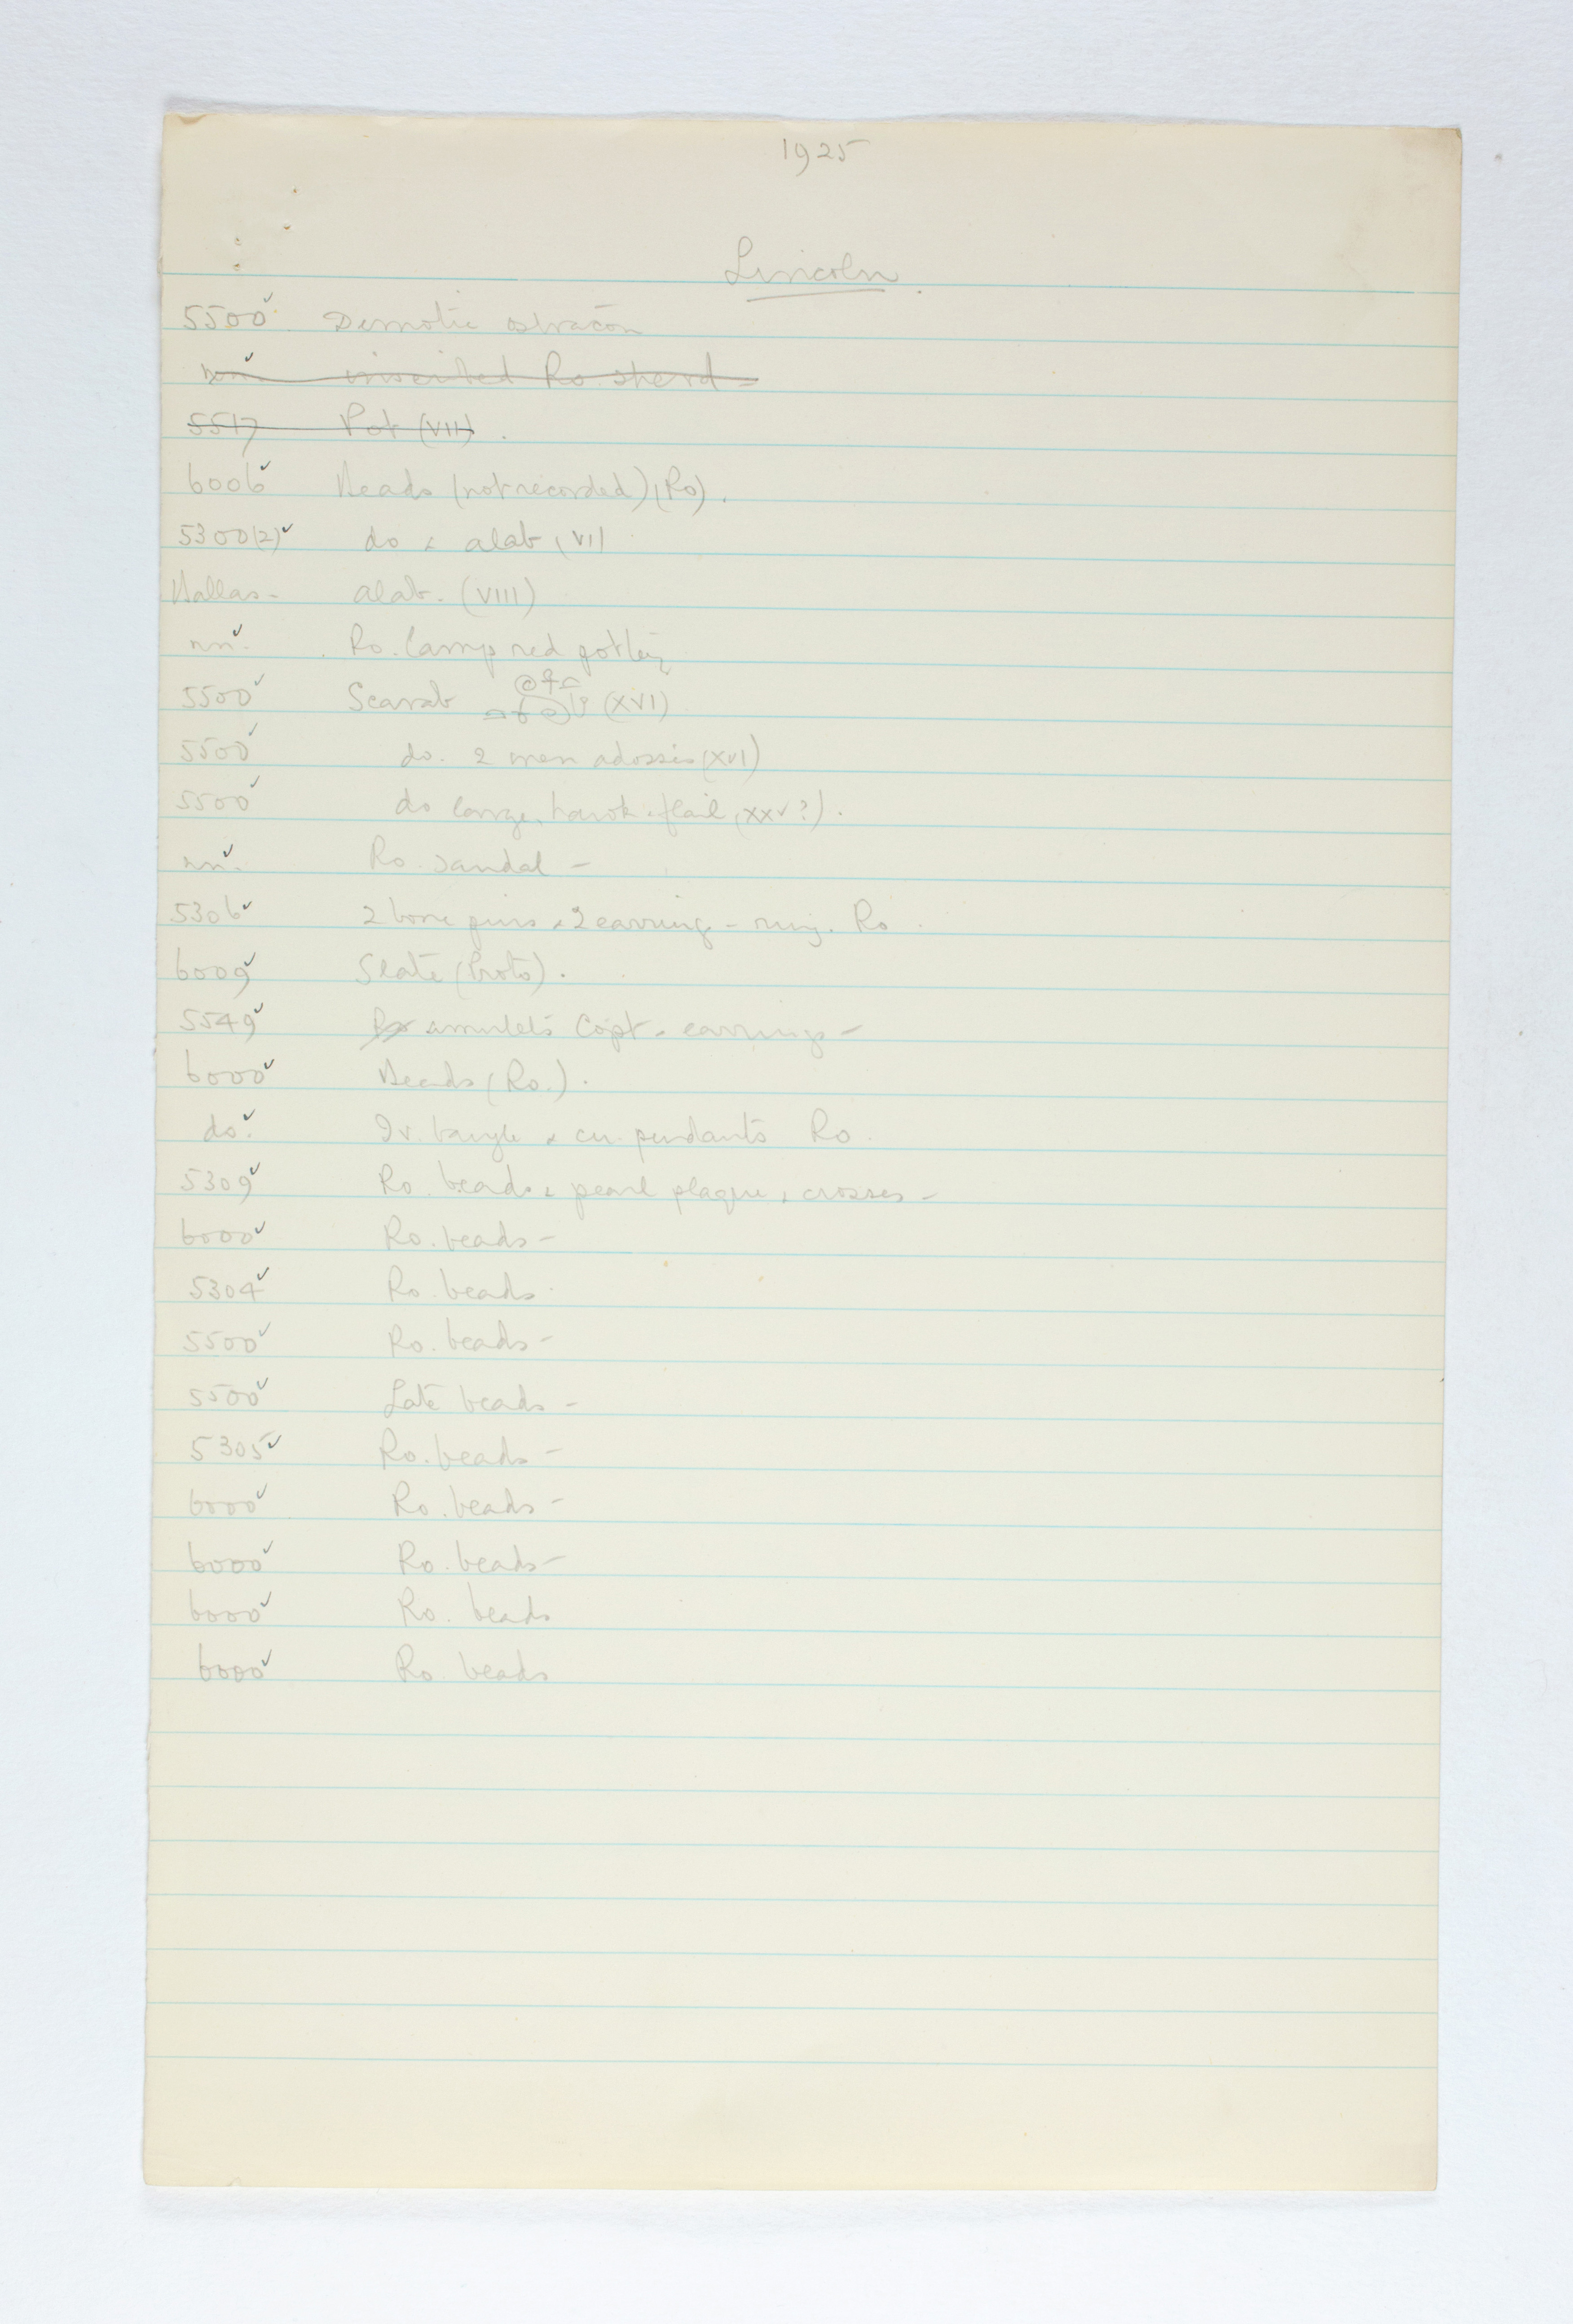 1925
Lincoln.
5500 ✓ Demotic ostracon
nn. ✓ inscribed Ro. sherd -
5517 Pot (VII).
6006 ✓ Beads (not recorded) (Ro).
5300(2) ✓ do & alab (VI)
Ballas - alab. (VIII)
nn. ✓ Ro. lamp red
5500 ✓ Scarab (XVI)
5500 ✓ do. 2 men adossés (XVI)
5500 ✓ do large, hawk & flail (XXV?).
nn. ✓ Ro. sandal -
5306 ✓ 2 bone pins & 2 earrings - ring. Ro
6009 ✓ Slate (Proto).
5549 ✓ amulets Copt & earrings -
6000 ✓ Beads (Ro.).
do. ✓ Iv. bangle & cu. pendants Ro.
5309 ✓ Ro. beads & pearl plaque & crosses -
6000 ✓ Ro. beads -
5304 ✓ Ro. beads.
5500 ✓ Ro. beads -
5500 ✓ Late beads -
5305 ✓ Ro. beads -
6000 ✓ Ro. beads -
6000 ✓ Ro. beads -
6000 ✓ Ro. beads
6000 ✓ Ro. beads